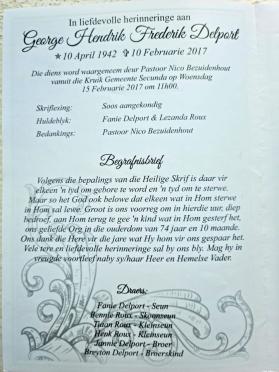 In liefdevolle herinneringe aan
George Hendrik Frederik Delport
★10 April 1942 ✞10 Februarie 2017
Die diens word waargeneem deur Pastoor Nico Bezuidenhout
vanuit die Kruik Gemeente Secunda op Woensdag
15 Februarie 2017 om 11h00.
Skriflesing: Soos aangekondig
Huldeblyk: Fanie Delport & Lezanda Roux
Bedankings: Pastoor Nico Bezuidenhout
Begrafnisbrief
Volgens die bepalings van die Heilige Skrif is daar vir
elkeen 'n tyd om gebore te word en 'n tyd om te sterwe.
Maar so het God ook belowe dat elkeen wat in Hom sterwe
in Hom sal lewe. Groot is ons voorreg om in hierdie uur, diep
bedroef, aan Hom terug te gee 'n kind wat in Hom gesterf het,
ons geliefde Org in die ouderdom van 74 jaar en 10 maande.
Ons dank die Here vir die jare wat Hy hom vir ons gespaar het.
Vele tere en liefdevolle herinneringe sal by ons bly. Mag hy in
vreugde voortleef naby sy/haar Heer en Hemelse Vader.
Draers:
Fanie Delport - Seun
Bennie Roux - Skoonseun
Tiaan Roux - Kleinseun
Henk Roux - Kleinseun
Jannie Delport - Broer
Breyton Delport - Broerskind